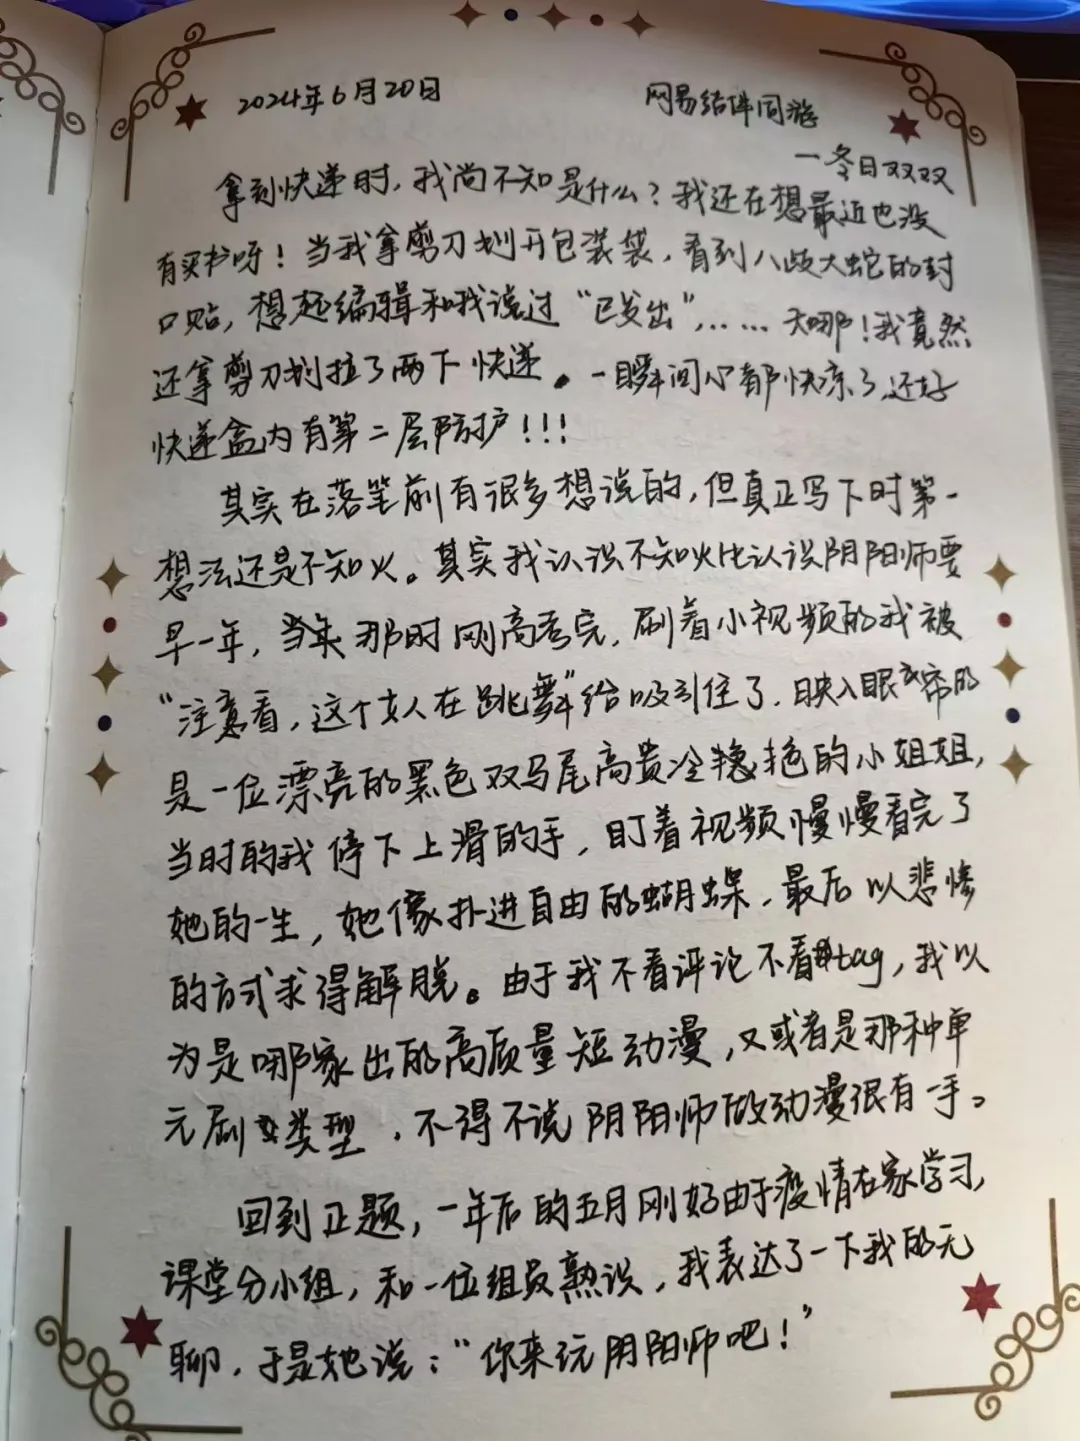 2024年6月20日
网易结伴同游
一冬日双双
拿到快递时，我尚不知是什么？我还在想最近也没
有买书呀！当我拿剪刀划开包装袋，看到八岐大蛇的封
口贴，想起编辑和我说过“已发出”，……天哪！我竟然
还拿剪刀划拉了两下快递。一瞬间心都快凉了，还好
快递盒内有第二层防护！！！
其实在落笔前有很多想说的，但真正写下时第一
想法还是不知火。其实我认识不知火比认识阴阳师要
早一年，当年那时刚高考完，刷着小视频的我被
“注意看，这个女人在跳舞”给吸引住了，映入眼帘的
是一位漂亮的黑色双马尾高贵冷艳的小姐姐，
当时的我停下上滑的手，盯着视频慢慢看完了
她的一生，她像扑进自由的蝴蝶，最后以悲惨
的方式求得解脱。由于我不看评论不看tag，我以
为是哪家出的高质量短动漫，又或者是那种单
元剧类型，不得不说阴阳师做动漫很有一手。
回到正题，一年后的五月刚好由于疫情在家学习，
课堂分小组，和一位组员熟识，我表达了一下我的无
聊，于是她说：“你来玩阴阳师吧！”